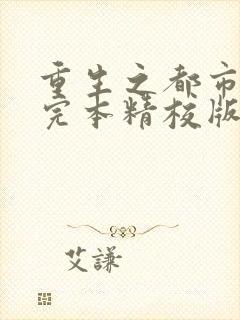 重生之都市
完本精校版
艾謙